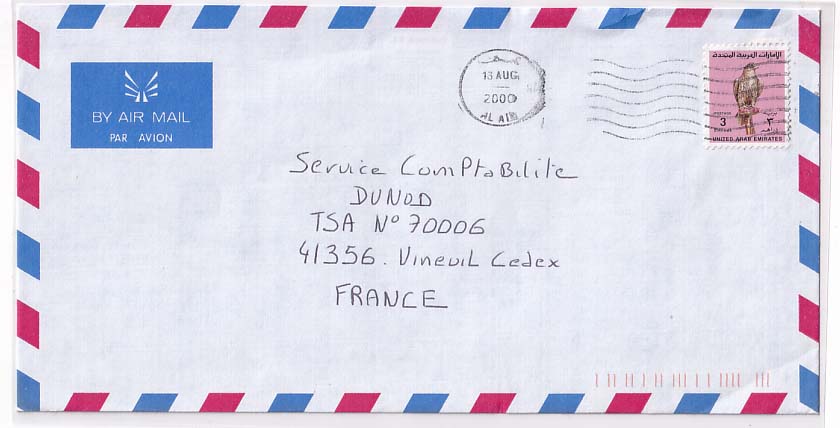 BY AIR MAIL
PAR AVION
AUG
2000
AL AIN
الإمارات العربية المتحدة
POSTAGE
3
٣
UNITED ARAB EMIRATES
Service ComPtaBilite
DUNOD
TSA N° 70006
41356. Vineuil Cedex
FRANCE